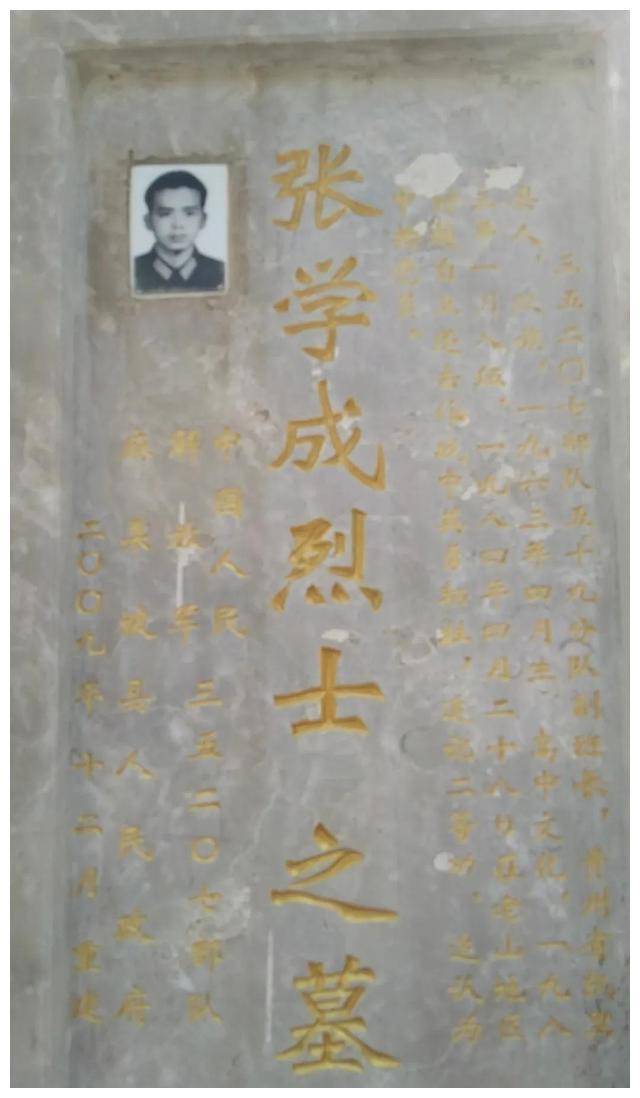 三五二〇七部队五十九分队副班长，贵州省
县人，族，一九六三年四月生，高中文化，一九八
三年一月入伍，一九八四年四月二十八日在老山地区
对越自卫还击作战中英勇牺牲，追记二等功，追认为
中共党员。
张学成烈士之墓
中国人民
解放军
三五二〇七部队
麻栗坡县人民政府
二〇〇九年十二月重建